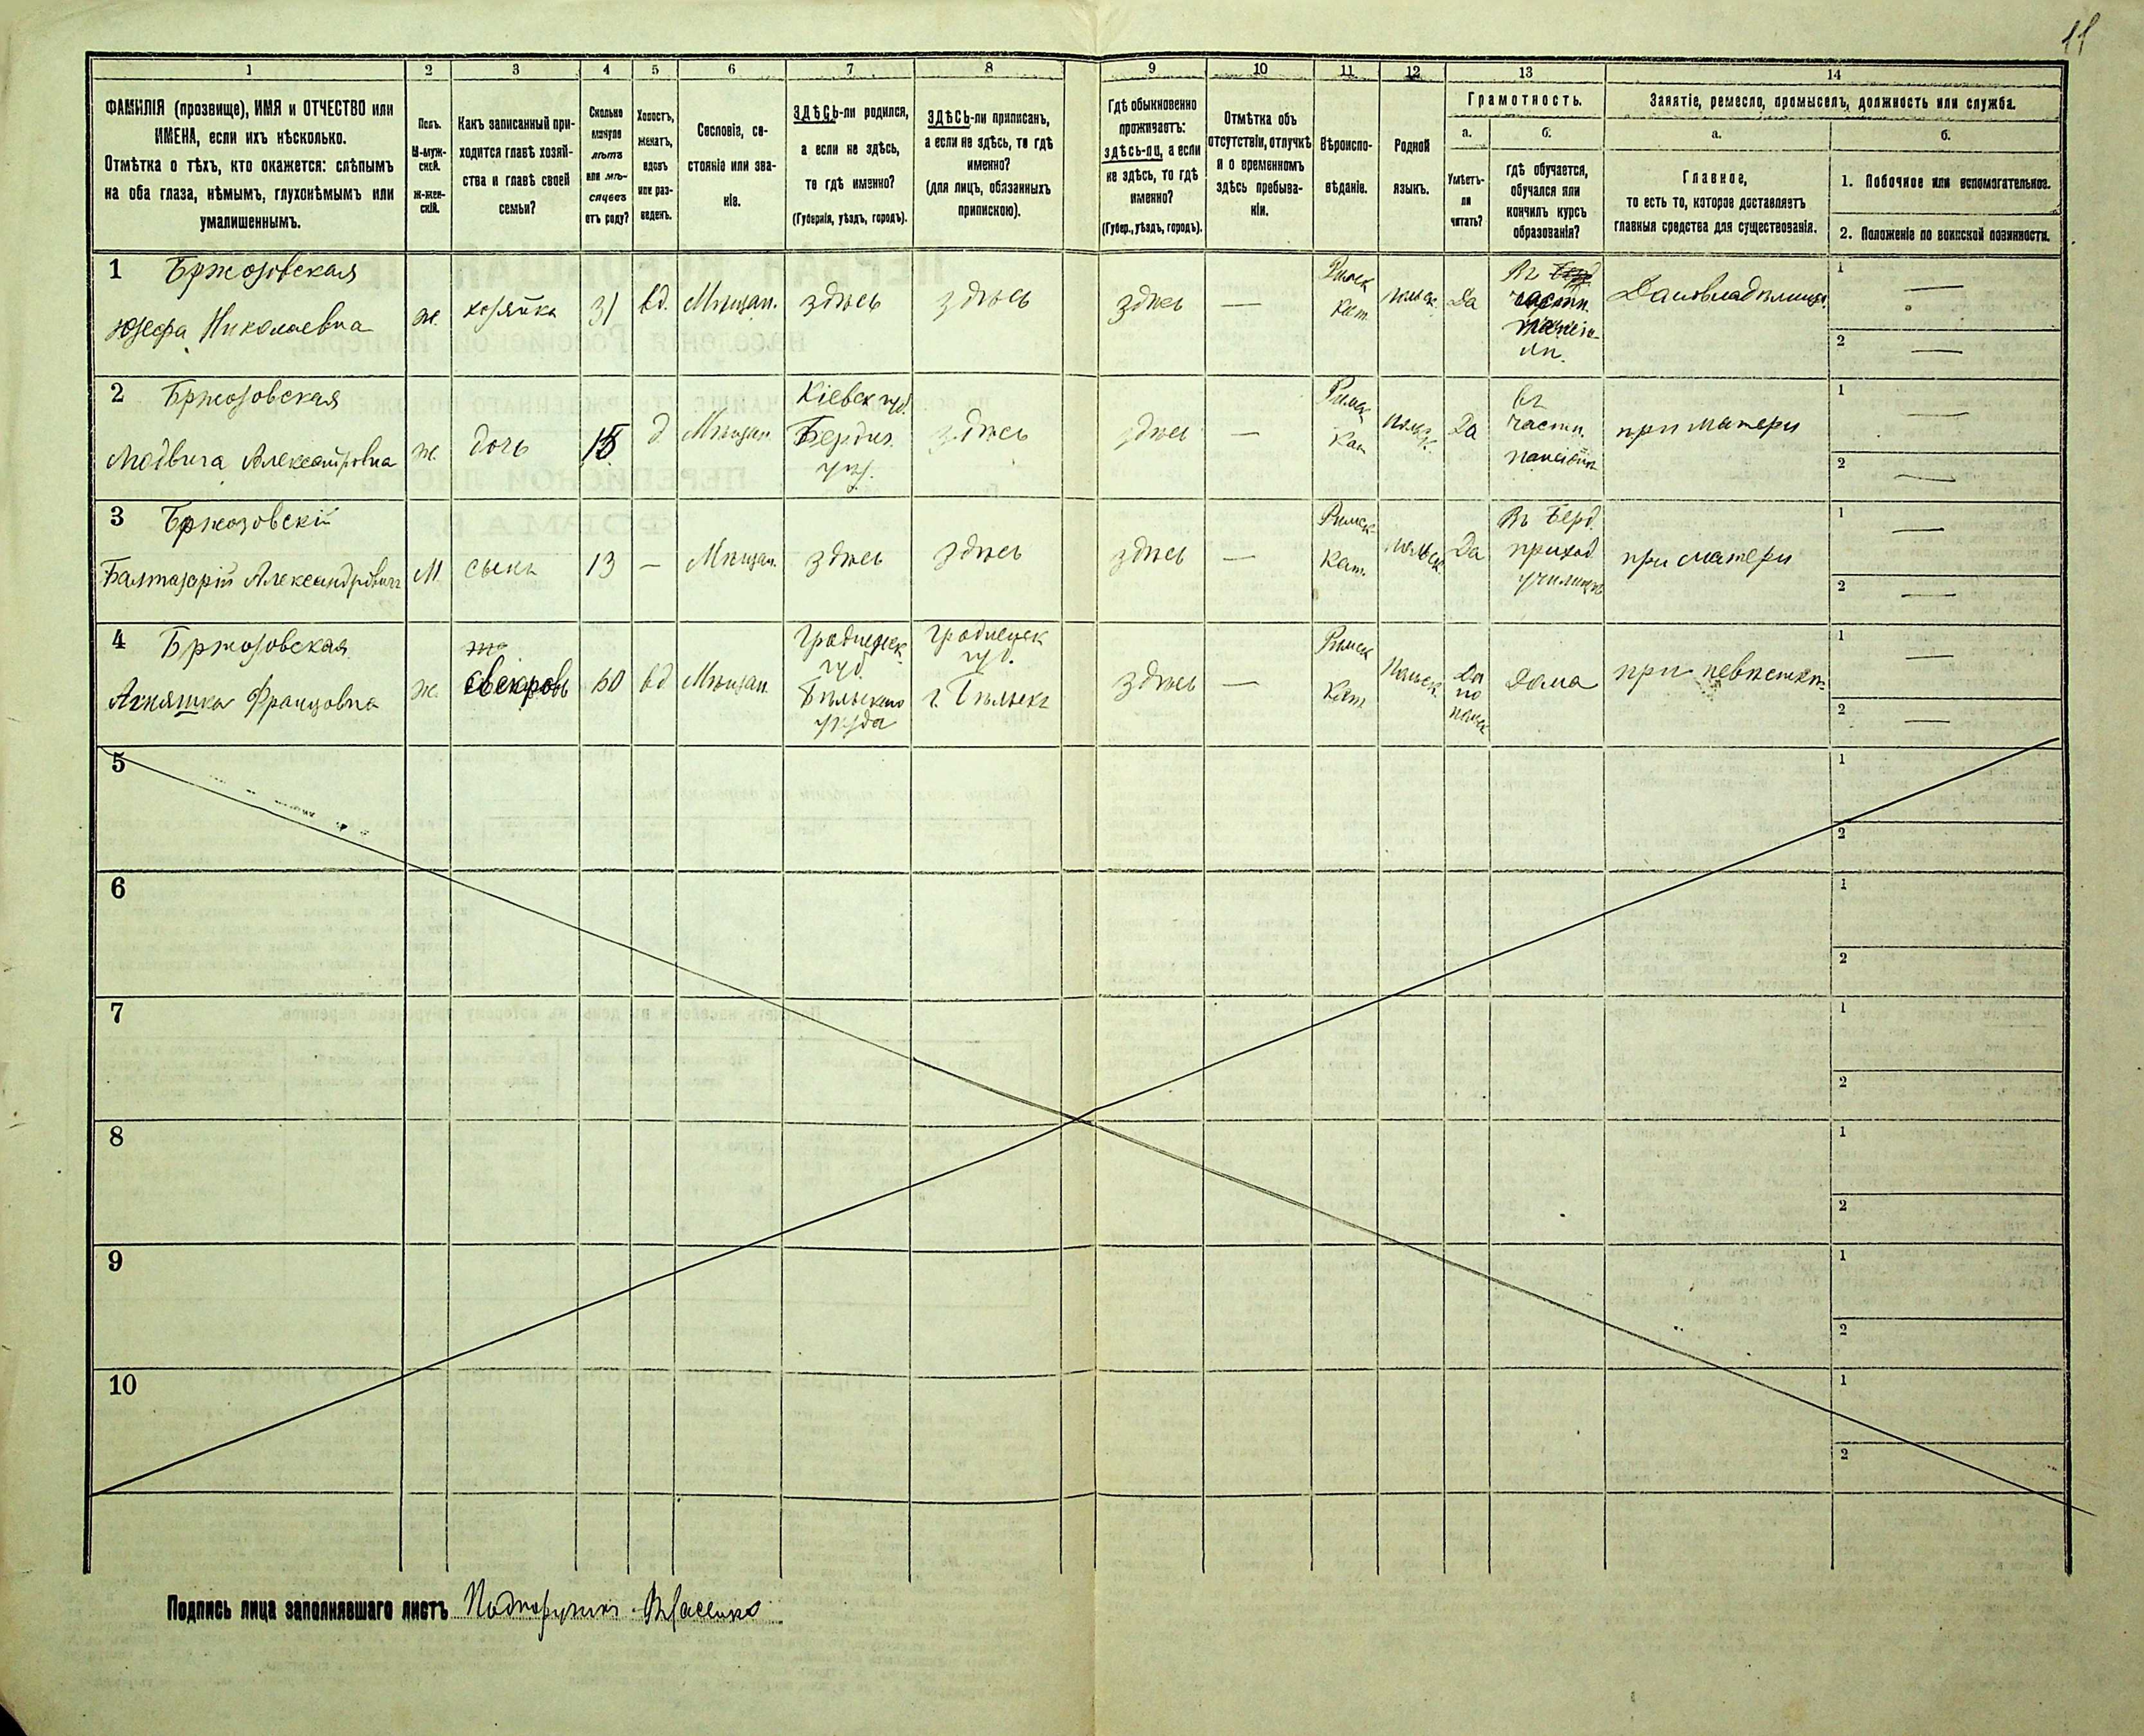 11
1 2 3 4 5 6 7 8 9 10 11 12 13 14
ФАМИЛІЯ (прозвище), ИМЯ и ОТЧЕСТВО или
ИМЕНА, если ихъ нѣсколько.
Отмѣтка о тѣхъ, кто окажется: слѣпымъ
на оба глаза, нѣмымъ, глухонѣмымъ или
умалишеннымъ.
Полъ.
М-муж-
ской.
Ж-жен-
скій.
Какъ записанный при-
ходится главѣ хозяй-
ства и главѣ своей
семьи?
Сколько
минуло
лѣтъ
или мѣ-
сяцевъ
отъ роду?
Холостъ,
женатъ,
вдовъ
или раз-
веденъ.
Сословіе, со-
стояніе или зва-
ніе.
ЗДѢСЬ-ли родился,
а если не здѣсь,
то гдѣ именно?
(Губернія, уѣздъ, городъ).
ЗДѢСЬ-ли приписанъ,
а если не здѣсь, то гдѣ
именно?
(для лицъ, обязанныхъ
припискою).
Гдѣ обыкновенно
проживаетъ:
здѣсь-ли, а если
не здѣсь, то гдѣ
именно?
(Губер., уѣздъ, городъ).
Отмѣтка объ
отсутствіи, отлучкѣ
и о временномъ
здѣсь пребыва-
ніи.
Вѣроиспо-
вѣданіе.
Родной
языкъ.
Грамотность.
а.
Умѣетъ-
ли
читать?
б.
гдѣ обучается,
обучался или
кончилъ курсъ
образованія?
Занятіе, ремесло, промыселъ, должность или служба.
а.
Главное,
то есть то, которое доставляетъ
главныя средства для существованія.
б.
1. Побочное или вспомогательное.
2. Положеніе по воинской повинности.
1 Бржозовская
Юзефа Николаевна
ж.
хозяйка
31
вд.
Мѣщан.
здѣсь
здѣсь
здѣсь
—
Римск
Кат.
польск.
Да
Въ
частн.
Домовладѣлица
1 —
2 —
2 Бржозовская
Людвига Александровна
ж.
дочь
15
д
Мѣщан.
Кіевск губ.
Бердич.
уѣз.
здѣсь
здѣсь
—
Римск
Кат
польск.
Да
въ
частн.
пансіонѣ
при матери
1 —
2 —
3 Бржозовскій
Балтазарій Александровичъ
М.
сынъ
13
—
Мѣщан.
здѣсь
здѣсь
здѣсь
—
Римск
Кат.
польск.
Да
Въ Берд.
приход.
училищѣ
при матери
1 —
2 —
4 Бржозовская
Агняшка Францовна
ж.
свекровь
60
вд
Мѣщан.
Гродненск
губ.
Бѣльскаго
уѣзда
Гродненск
губ.
г. Бѣльскъ
здѣсь
—
Римск
Кат
Польск.
Да
по
польск
дома
при невѣсткѣ
1 —
2 —
5
1
2
6
1
2
7
1
2
8
1
2
9
1
2
10
1
2
Подпись лица заполнявшаго листъ Подпоручикъ